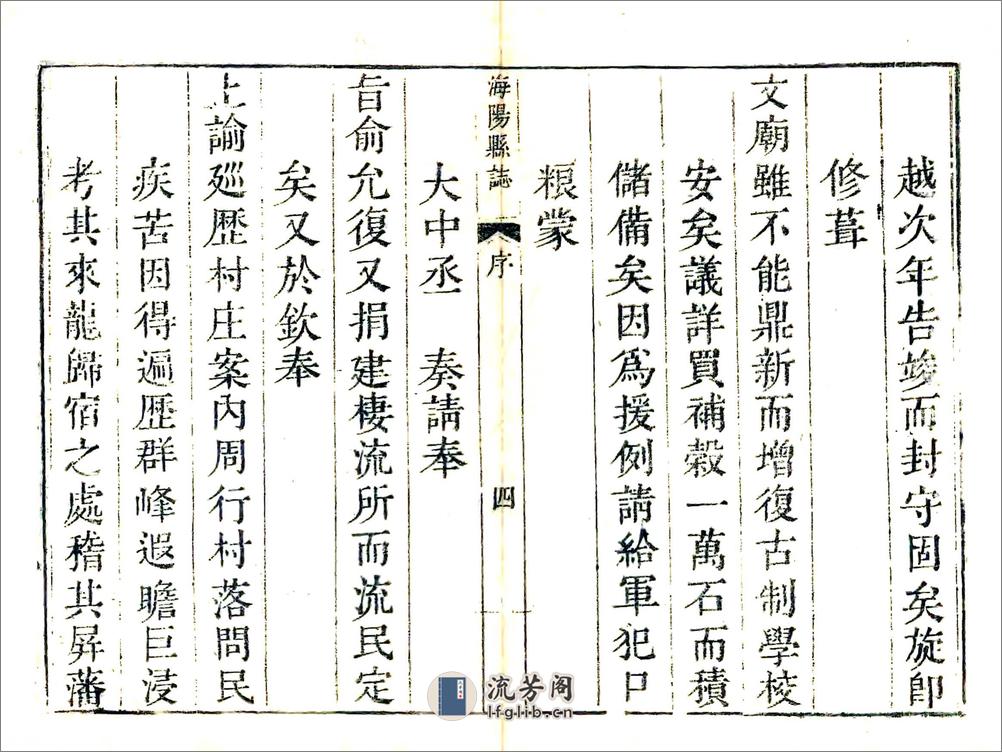 越次年告竣而封守固矣旋卽
修葺
文廟雖不能鼎新而增復古制學校
安矣議詳買補穀一萬石而積
儲備矣因爲援例請給軍犯口
粮蒙
海陽縣誌 序 四
大中丞 奏請奉
旨俞允復又捐建棲流所而流民定
矣又於欽奉
上諭廵歷村庄案內周行村落問民
疾苦因得遍歷群峰遐瞻巨浸
考其來龍歸宿之處稽其屏藩
流芳阁
lfglib.cn